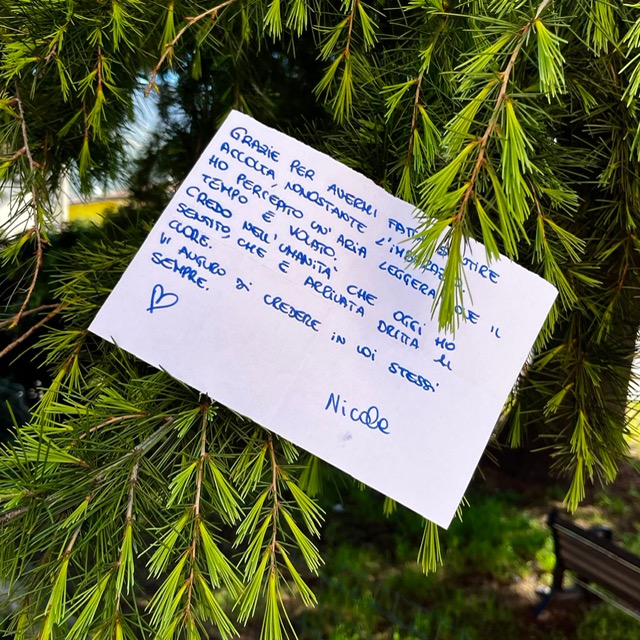 GRAZIE PER AVERMI FATTO SENTIRE
ACCOLTA, NONOSTANTE L'
HO PERCEPITO UN'ARIA LEGGERA E IL
TEMPO È VOLATO.
CREDO NELL'UMANITÀ CHE OGGI HO
SENTITO, CHE È ARRIVATA DRITTA AL
CUORE.
VI AUGURO DI CREDERE IN VOI STESSI
SEMPRE.
Nicole